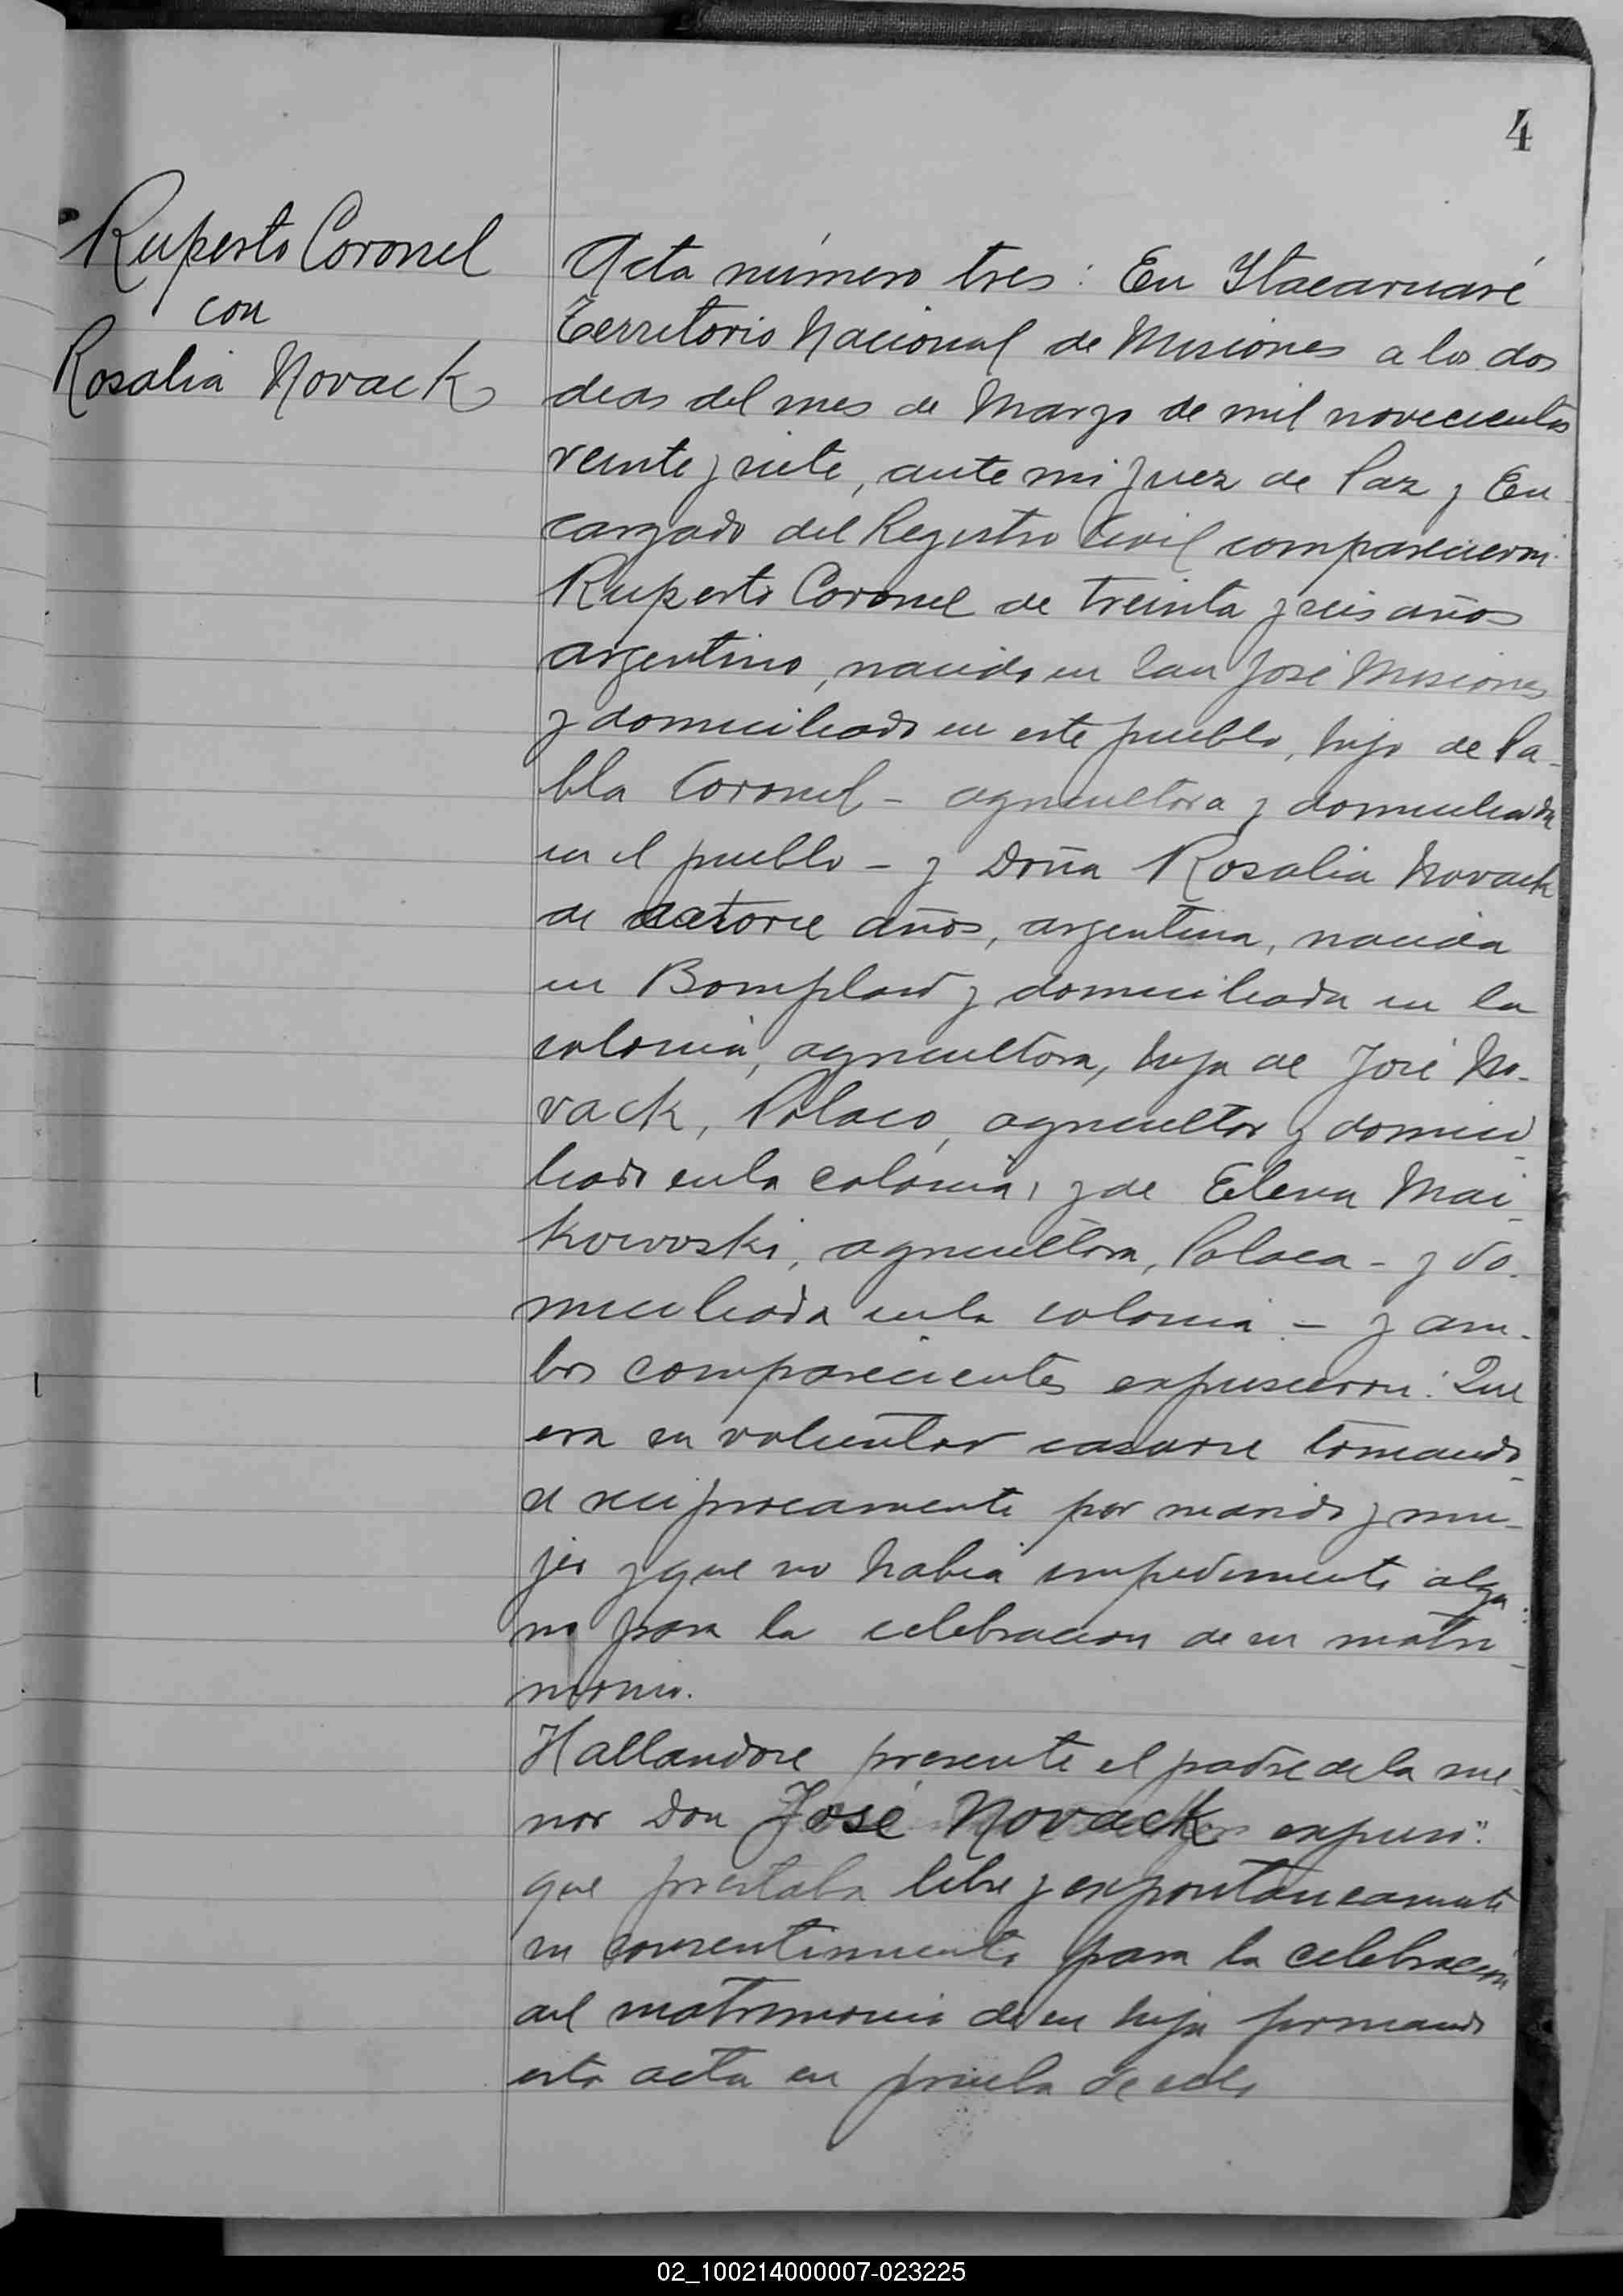 4
Ruperto Coronel
con
Rosalia Novack
Acta número tres: En Itacaruaré
Territorio Nacional de Misiones a los dos
dias del mes de Marzo de mil novecientos
veinte y siete, ante mi Juez de Paz y En
cargado del Registro Civil comparecieron:
Ruperto Coronel de treinta y seis años
argentino, nacido en San José Misiones
y domiciliado en este pueblo, hijo de Pa-
bla Coronel - agricultora y domiciliada
en el pueblo - y Doña Rosalia Novack
de catorce años, argentina, nacida
en Bompland y domiciliada en la
colonia, agricultora, hija de José No-
vack, Polaco, agricultor y domici-
liado en la colonia, y de Elena Mai-
kowoski, agricultora, Polaca - y do-
miciliada en la colonia - y am-
bos comparecientes expusieron: Que
era su voluntad casarse tomando-
se reciprocamente por marido y mu-
jer y que no habia impedimento algu-
no para la celebracion de su matri-
monio.
Hallandose presente el padre de la me-
nor Don José Novack expuso:
que prestaba libre y expontaneamente
su consentimiento para la celebracion
del matrimonio de su hija firmando
esta acta en prueba de ello
02_100214000007-023225